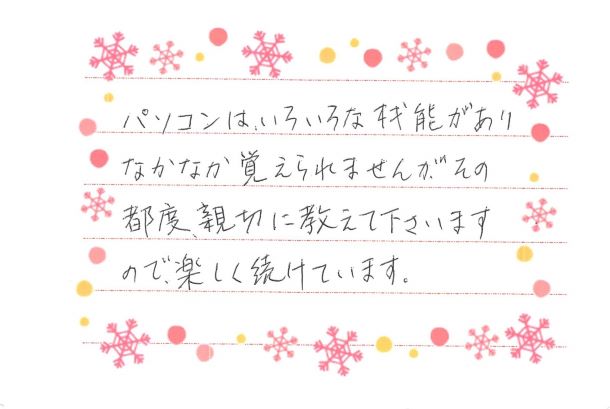 パソコンは、いろいろな機能があり
なかなか覚えられませんが、その
都度、親切に教えて下さいます
ので、楽しく続けています。